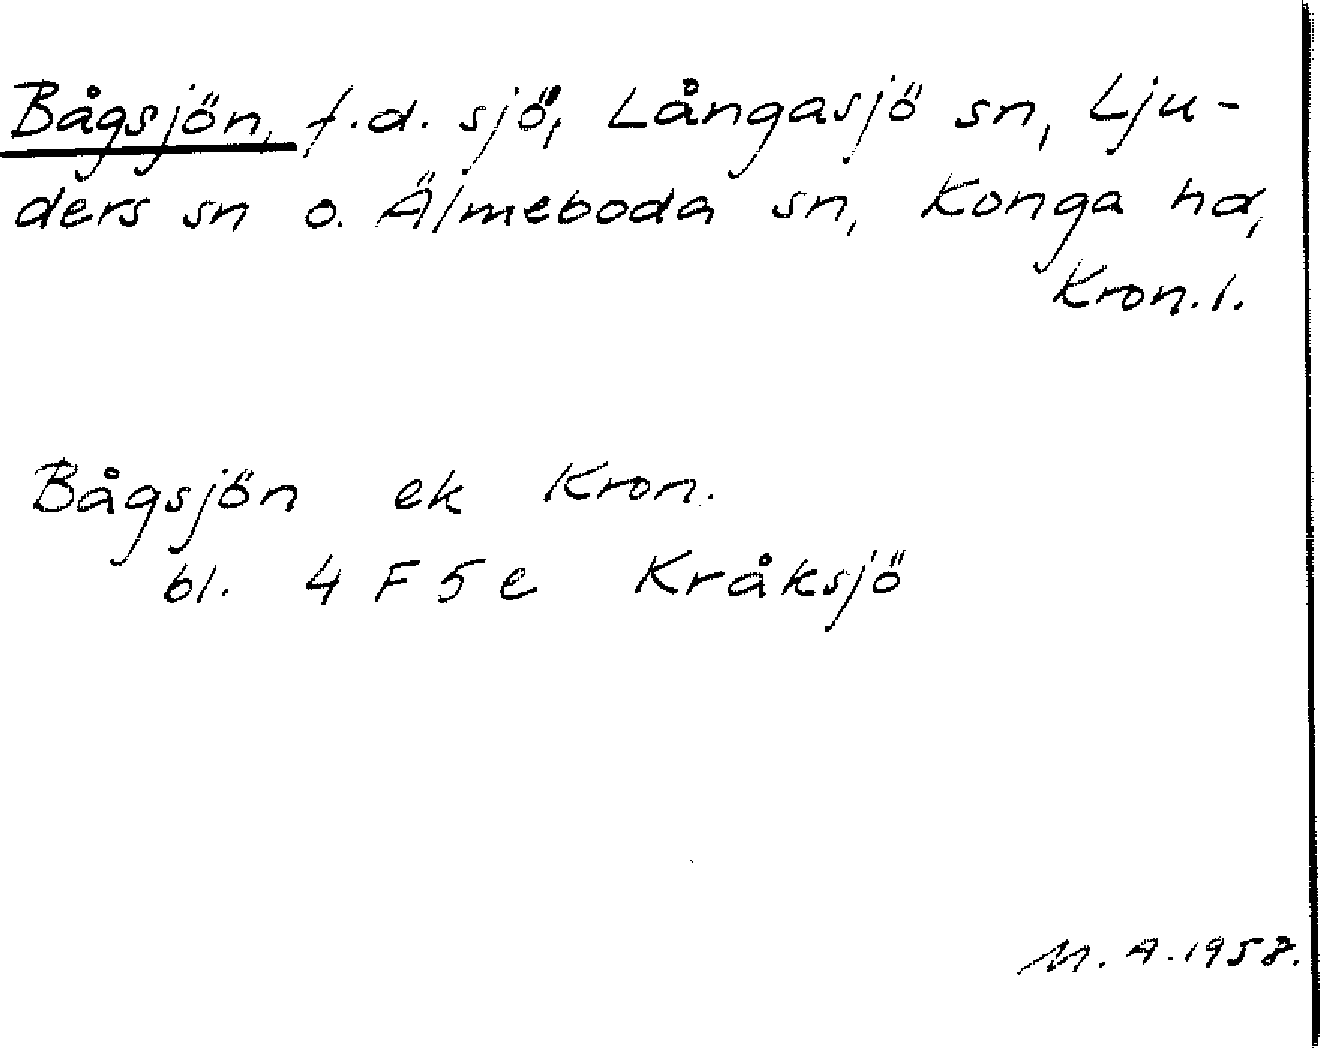 Bågsjön, f.d. sjö, Långasjö sn, Lju-
ders sn o. Älmeboda sn, Konga hd,
Kron. l.
Bågsjön ek Kron.
bl. 4 F 5 e Kråksjö
M. A. 1958.